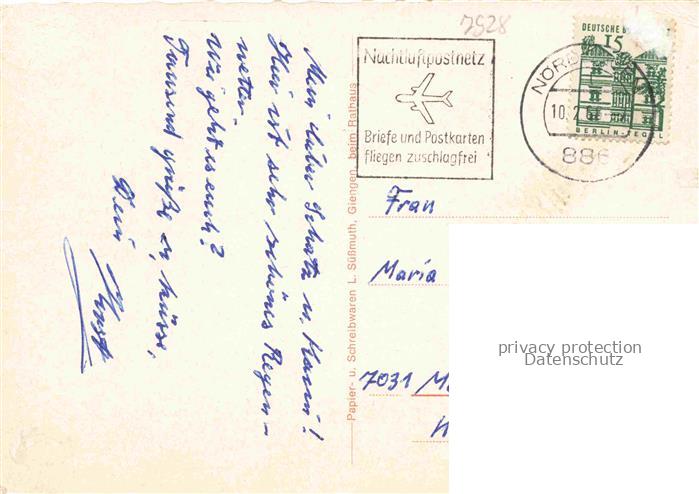 7928
Nachtluftpostnetz
Briefe und Postkarten
fliegen zuschlagfrei
DEUTSCHE B
15
BERLIN-TEGEL
NÖRD
10.2.6
886
Mein lieber Schatz u. Karin!
Hier ist sehr schönes Regen-
wetter.
Wie geht es euch?
Tausend Grüße u. Küsse,
Dein
Horst
Papier- u. Schreibwaren L. Süßmuth, Giengen, beim Rathaus
Frau
Maria
7031 M
privacy protection
Datenschutz